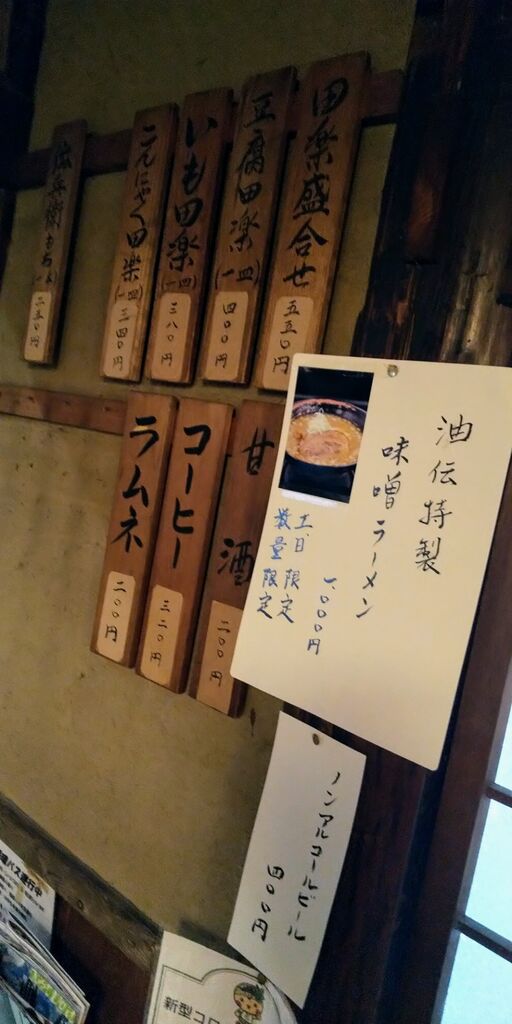 田楽盛合せ
五五〇円
豆腐田楽(一皿)
四〇〇円
いも田楽(一皿)
三八〇円
こんにゃく田楽(一皿)
三四〇円
兵衛もち
二五〇円
甘酒
二〇〇円
コーヒー
三二〇円
ラムネ
二〇〇円
油伝特製
味噌ラーメン
一、〇〇〇円
土、日限定
数量限定
ノンアルコールビール
四〇〇円
バス運行中
新型コロ